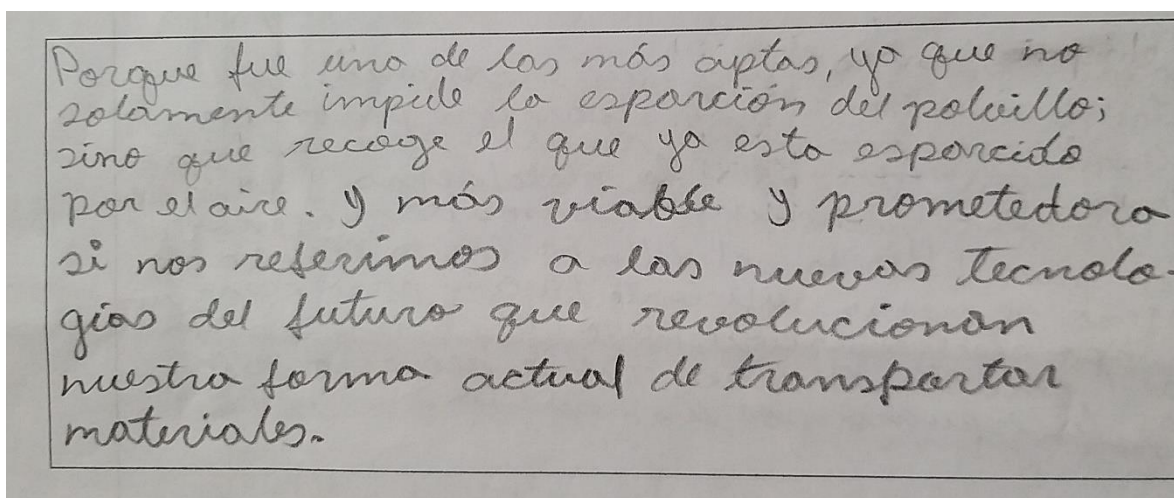 Porque fue una de las más aptas, ya que no
solamente impide la esparción del polvillo;
sino que recoge el que ya esta esparcido
por el aire. y más viable y prometedora
si nos referimos a las nuevas tecnolo-
gias del futuro que revolucionan
nuestra forma actual de transportar
materiales.